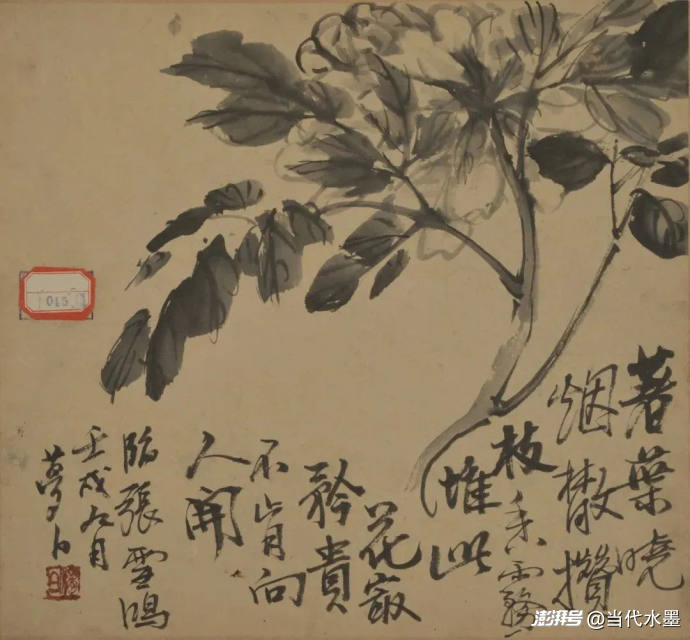 著葉曉
烟撒攢
枝香霧
堆此
花最
矜貴
不肯向
人開
臨張雪鴻
壬戌九月
夢白
澎湃号@当代水墨